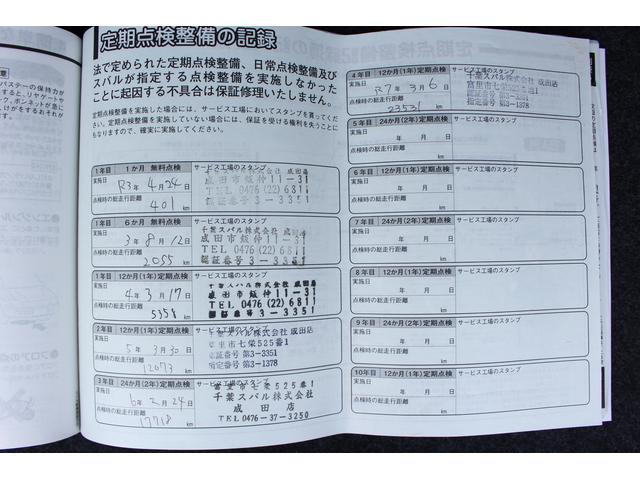 定期点検整備の記録
法で定められた定期点検整備、日常点検整備及び
スバルが指定する点検整備を実施しなかった
ことに起因する不具合は保証修理いたしません。
定期点検整備を実施した場合には、サービス工場においてスタンプを買ってください。
定期点検整備を実施していない場合には、保証を受ける権利を失うことに
もなりますので、確実に実施してください。
1年目 1か月 無料点検 サービス工場のスタンプ
実施日
R3年 4月 24日
点検時の総走行距離
401 km
成田市飯仲11-31
TEL 0476 (22) 6811
認証番号3-3351
1年目 6か月 無料点検 サービス工場のスタンプ
実施日
3年 8月 12日
点検時の総走行距離
2055 km
千葉スバル株式会社 成田店
成田市飯仲11-31
TEL 0476 (22) 6811
認証番号3-3351
1年目 12か月(1年)定期点検 サービス工場のスタンプ
実施日
4年 3月 17日
点検時の総走行距離
5358 km
成田市飯仲11-31
TEL 0476 (22) 6811
認証番号3-3351
2年目 12か月(1年)定期点検 サービス工場のスタンプ
実施日
5年 3月 30日
点検時の総走行距離
12073 km
千葉スバル株式会社 成田店
富里市七栄525番1
認証番号 第3-3351
指定番号 第3-1378
3年目 24か月(2年)定期点検 サービス工場のスタンプ
実施日
6年 2月 24日
点検時の総走行距離
17718 km
富里市七栄525番1
千葉スバル株式会社
成田店
TEL 0476-37-3250
4年目 12か月(1年)定期点検 サービス工場のスタンプ
実施日
R7年 3月 6日
点検時の総走行距離
23531 km
千葉スバル株式会社 成田店
指定番号 第3-1378
5年目 24か月(2年)定期点検 サービス工場のスタンプ
実施日
年 月 日
点検時の総走行距離
km
6年目 12か月(1年)定期点検 サービス工場のスタンプ
実施日
年 月 日
点検時の総走行距離
km
7年目 24か月(2年)定期点検 サービス工場のスタンプ
実施日
年 月 日
点検時の総走行距離
km
8年目 12か月(1年)定期点検 サービス工場のスタンプ
実施日
年 月 日
点検時の総走行距離
km
9年目 24か月(2年)定期点検 サービス工場のスタンプ
実施日
年 月 日
点検時の総走行距離
km
10年目 12か月(1年)定期点検 サービス工場のスタンプ
実施日
年 月 日
点検時の総走行距離
km